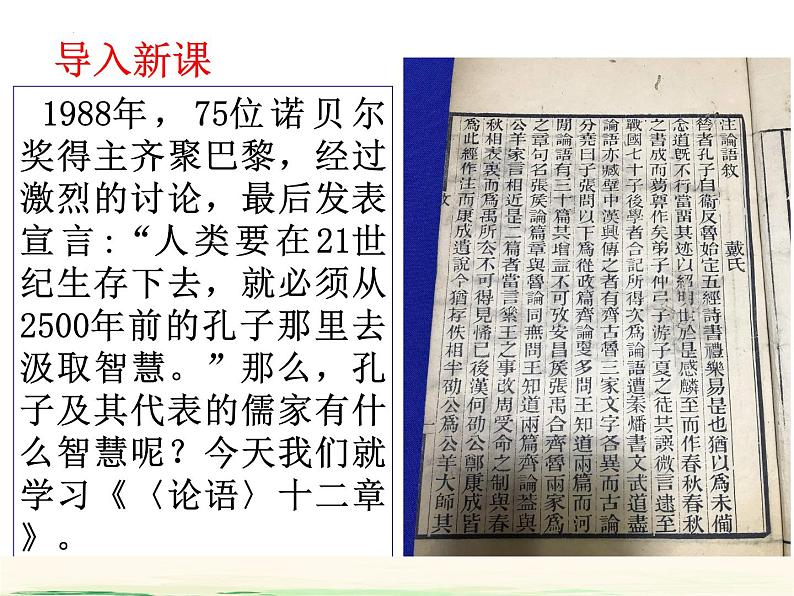 导入新课
1988年，75位诺贝尔
奖得主齐聚巴黎，经过
激烈的讨论，最后发表
宣言:“人类要在21世
纪生存下去，就必须从
2500年前的孔子那里去
汲取智慧。”那么，孔
子及其代表的儒家有什
么智慧呢？今天我们就
学习《〈论语〉十二章
》。
注論語敘
戴氏
昝者孔子自衞反魯始定五經詩書禮樂易是也猶以爲未備
念道旣不行當畱其迹以紹明世於是感麟至而作春秋春秋
之書成而夢尊作矣弟子仲弓子游子夏之徒共譔微言逮至
戰國七十子後學者合記所得次爲論語遭秦燔書文武道盡
論語亦臧壁中漢興傳之者有齊古魯三家文字各異古論
分堯曰子張問以下爲從政篇齊論多問王知道兩篇而河
閒論語有三十篇其增益不可攷安昌矦張禹合齊魯兩家爲
之章句名張矦論篇章與魯論同無問王知道兩篇齊論葢與
公羊家言相近是二篇者當言素王之事改周受命之制與春
秋相表裏而爲禹所去不可得見惜已後漢何劭公鄭康成皆
爲此經作注而康成遺說今猶存佚相半劭公爲公羊大師其